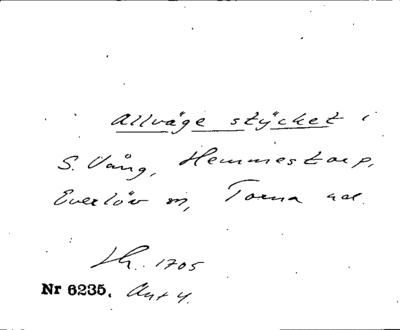 Allväge stycket i
S. Vång, Hemmestorp,
Everlöv sn, Torna hd.
Lh. 1705
Nr 6235. Avt 4.